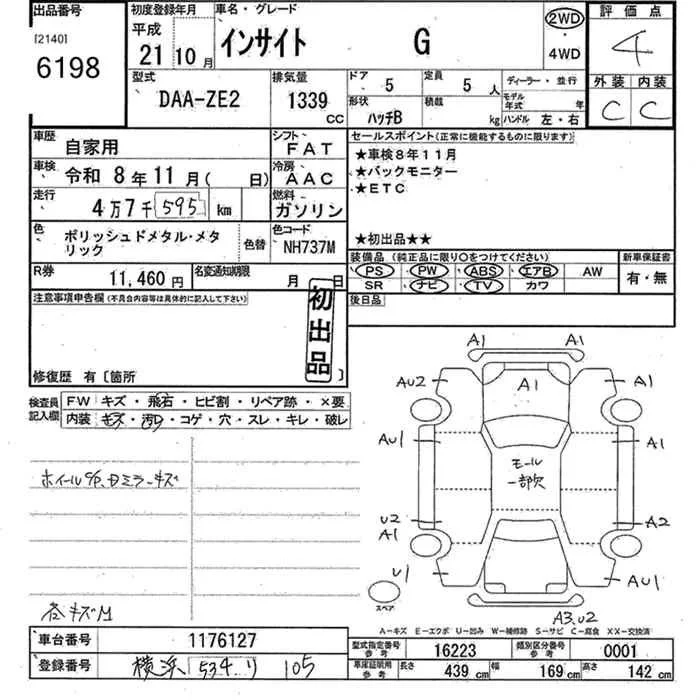 出品番号
[2140]
6198
初度登録年月
平成
21 10 月
車名・グレード
インサイト G
2WD
・
4WD
評価点
4
外装 内装
C C
型式
DAA-ZE2
排気量
1339 CC
ドア 5
定員 5 人
ディーラー・並行
形状 ハッチB
積載 kg
モデル年式 年
ハンドル 左・右
車歴 自家用
シフト FAT
車検 令和 8年 11月( 日)
冷房 AAC
走行 4万7千595 km
燃料 ガソリン
色 ポリッシュドメタル・メタリック
色替
色コード NH737M
R券 11,460 円
名変通知期限 月 日
セールスポイント(正常に機能するものに限ります)
★車検8年11月
★バックモニター
★ETC
★初出品★★
装備品 (純正品に限り○をつけてください)
新車保証書
PS PW ABS エアB AW
SR ナビ TV カワ
有・無
後日品
注意事項申告欄 (不具合内容等は具体的に記入して下さい)
初出品
修復歴 有 〔箇所
検査員記入欄
FW キズ・飛石・ヒビ割・リペア跡・×要
内装 キズ・汚り・コゲ・穴・スレ・キレ・破レ
A1 A1
AU2 A1 A1
AU1 A1
モール
一部欠
U2 A2
A1
U1 AU1
スペア
A3.U2
A-キズ E-エクボ U-凹み W-補修跡 S-サビ C-腐食 XX-交換済
車台番号 1176127
登録番号 横浜 534 り 105
型式指定番号 参考 16223
類別区分番号 参考 0001
車庫証明用 参考
長さ 439 cm 幅 169 cm 高さ 142 cm